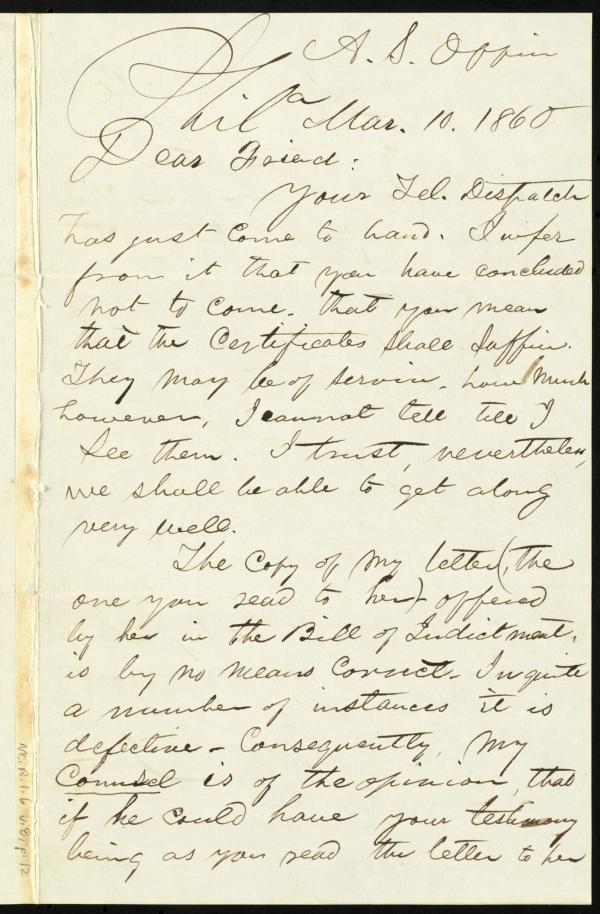 A. S. Office
Phila Mar. 10. 1860
Dear Friend:
Your Tel. Dispatch
has just come to hand. I infer
from it that you have concluded
not to come. that you mean
that the Certificates shall suffice.
They may be of service. how much
however, I cannot tell till I
see them. I trust, nevertheless,
we shall be able to get along
very well.
The copy of my letter (the
one you read to her) offered
by her in the Bill of Indictment,
is by no means Correct. In quite
a number of instances it is
defective - Consequently, My
Counsel is of the opinion, that
if he could have your testimony
being as you read the letter to her
Ms. B.1.6 v.8, p. 12